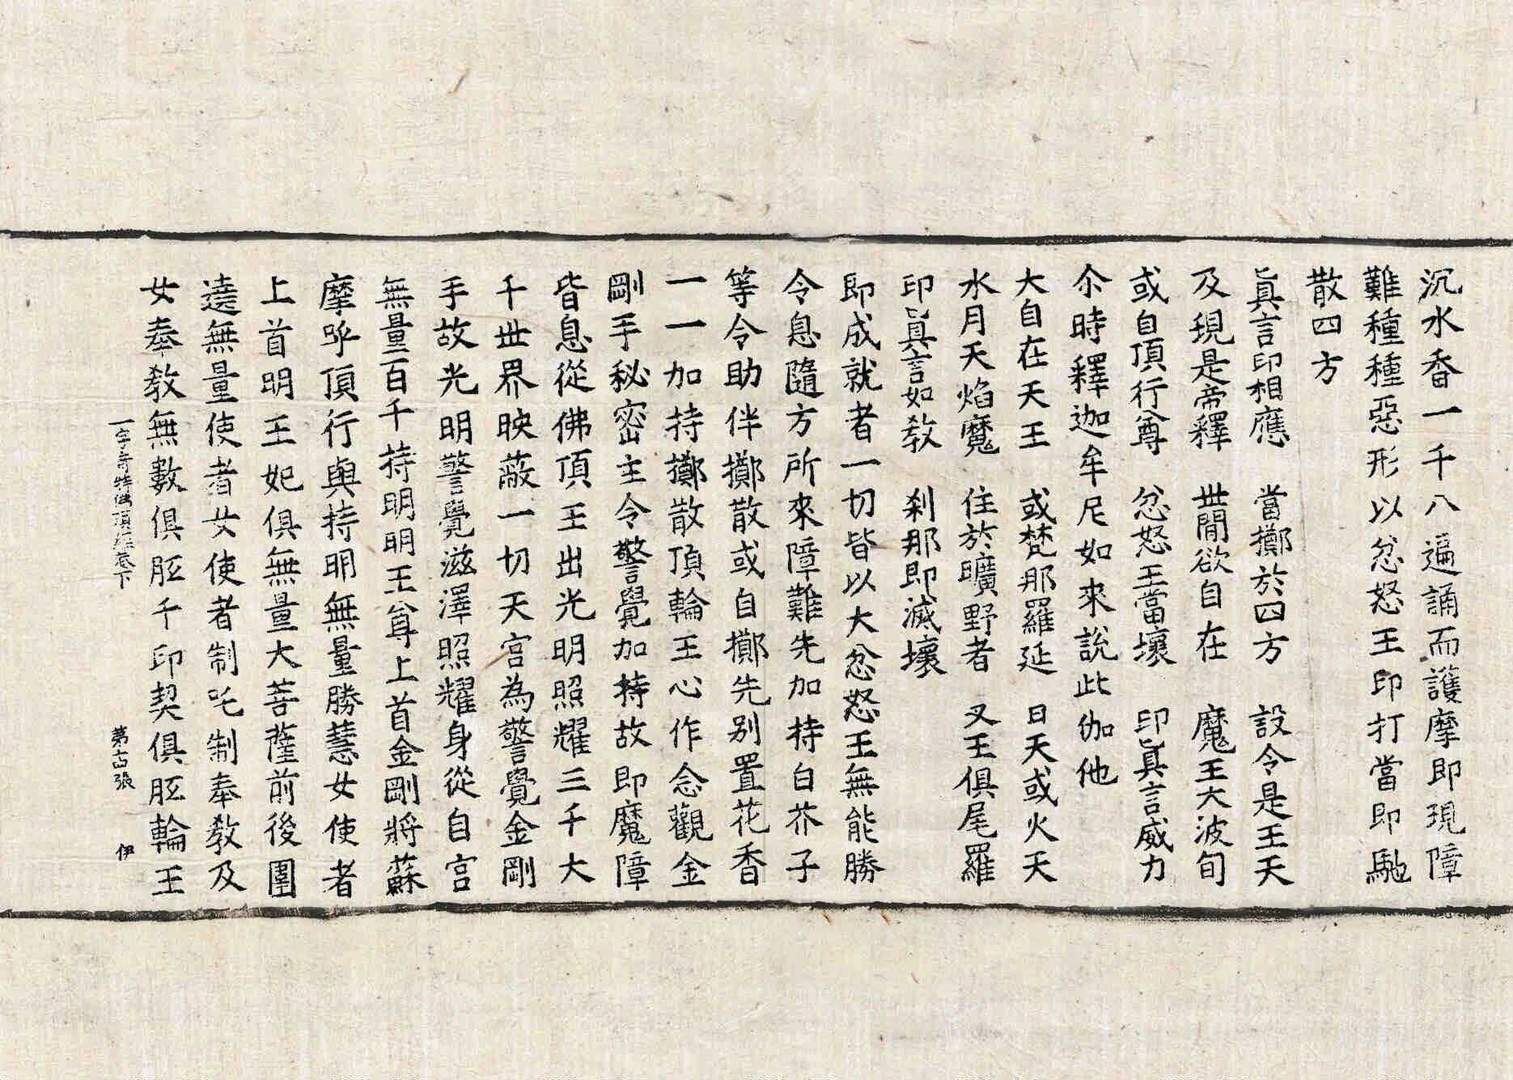 沉水香一千八遍誦而護摩即現障
難種種惡形以忿怒王印打當即馳
散四方
眞言印相應　當擲於四方　設令是王天
及現是帝釋　世間欲自在　魔王大波旬
或自頂行尊　忿怒王當壞　印眞言威力
尒時釋迦牟尼如來說此伽他
大自在天王　或梵那羅延　日天或火天
水月天焰魔　住於曠野者　叉王俱尾羅
印眞言如教　刹那即滅壞
即成就者一切皆以大忿怒王無能勝
令息隨方所來障難先加持白芥子
等令助伴擲散或自擲先別置花香
一一加持擲散頂輪王心作念觀金
剛手秘密主令警覺加持故即魔障
皆息從佛頂王出光明照耀三千大
千世界映蔽一切天宮為警覺金剛
手故光明警覺滋澤照耀身從自宮
無量百千持明明王尊上首金剛將蘇
摩呼頂行與持明無量勝慧女使者
上首明王妃俱無量大菩薩前後圍
遶無量使者女使者制吒制奉教及
女奉教無數俱胝千印契俱胝輪王
一字奇特佛頂經卷下　第古張　伊